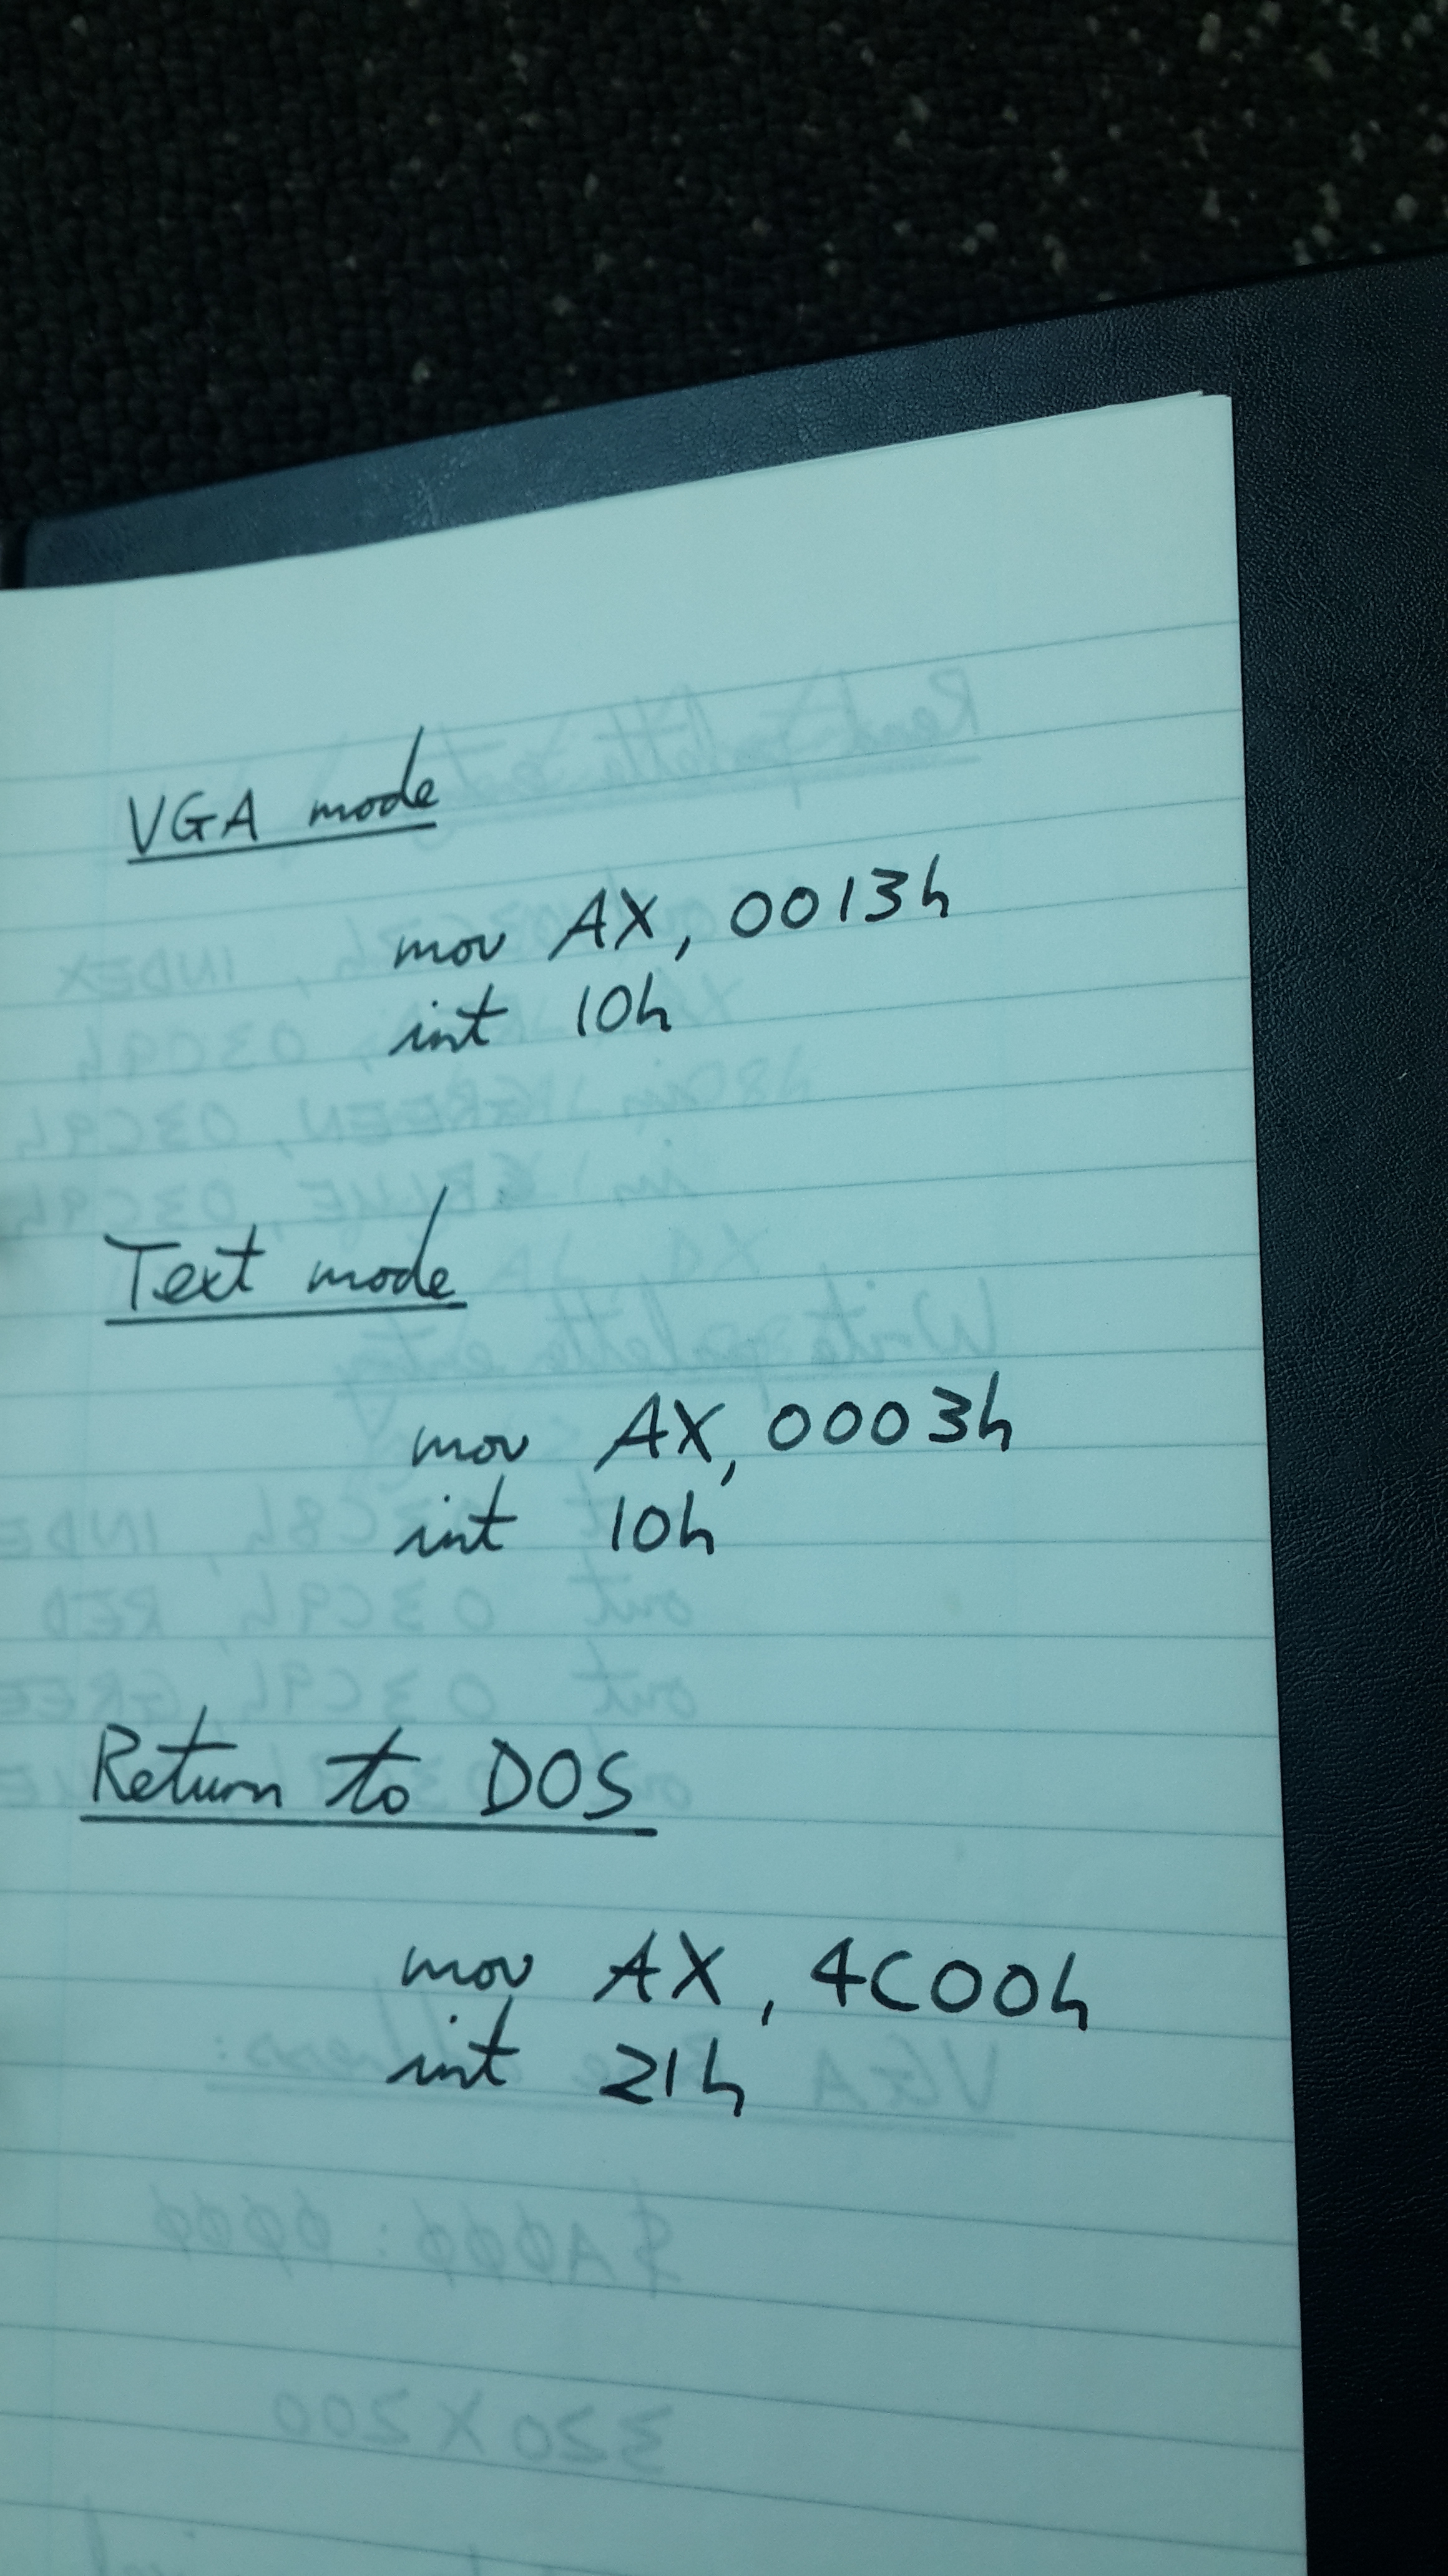 VGA mode
mov AX, 0013h
int 10h
Text mode
mov AX, 0003h
int 10h
Return to DOS
mov AX, 4C00h
int 21h